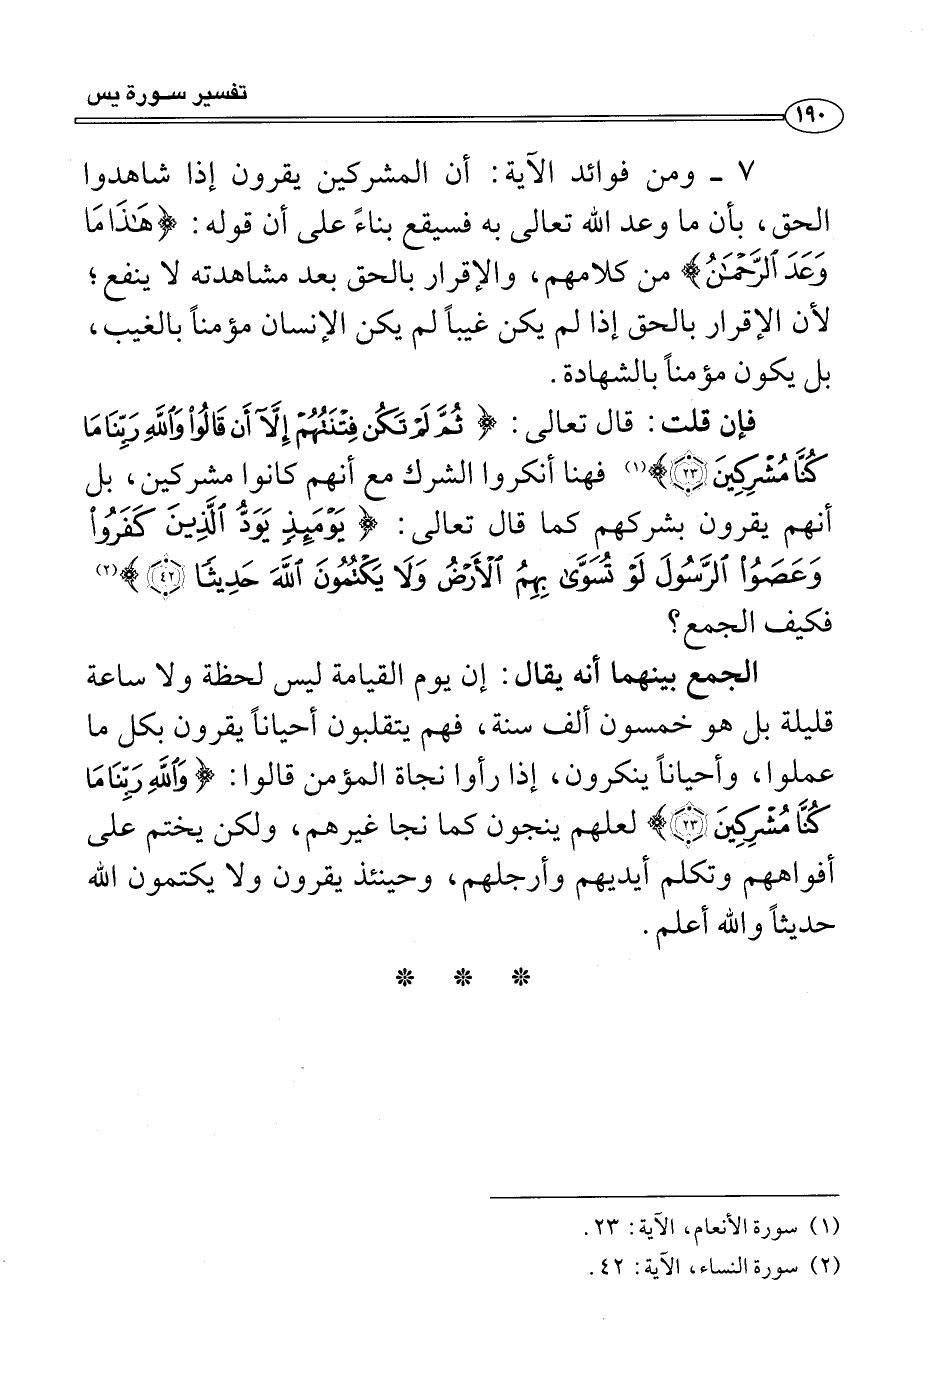 تفسير سورة يس
١٩٠
٧ ـ ومن فوائد الآية: أن المشركين يقرون إذا شاهدوا
الحق، بأن ما وعد الله تعالى به فسيقع بناءً على أن قوله: ﴿هَٰذَا مَا
وَعَدَ ٱلرَّحْمَٰنُ﴾ من كلامهم، والإقرار بالحق بعد مشاهدته لا ينفع؛
لأن الإقرار بالحق إذا لم يكن غيباً لم يكن الإنسان مؤمناً بالغيب،
بل يكون مؤمناً بالشهادة.
فإن قلت: قال تعالى: ﴿ثُمَّ لَمْ تَكُن فِتْنَتُهُمْ إِلَّآ أَن قَالُوا۟ وَٱللَّهِ رَبِّنَا مَا
كُنَّا مُشْرِكِينَ ٢٣﴾(١) فهنا أنكروا الشرك مع أنهم كانوا مشركين، بل
أنهم يقرون بشركهم كما قال تعالى: ﴿يَوْمَئِذٍ يَوَدُّ ٱلَّذِينَ كَفَرُوا۟
وَعَصَوُا۟ ٱلرَّسُولَ لَوْ تُسَوَّىٰ بِهِمُ ٱلْأَرْضُ وَلَا يَكْتُمُونَ ٱللَّهَ حَدِيثًا ٤٢﴾(٢)
فكيف الجمع؟
الجمع بينهما أنه يقال: إن يوم القيامة ليس لحظة ولا ساعة
قليلة بل هو خمسون ألف سنة، فهم يتقلبون أحياناً يقرون بكل ما
عملوا، وأحياناً ينكرون، إذا رأوا نجاة المؤمن قالوا: ﴿وَٱللَّهِ رَبِّنَا مَا
كُنَّا مُشْرِكِينَ ٢٣﴾ لعلهم ينجون كما نجا غيرهم، ولكن يختم على
أفواههم وتكلم أيديهم وأرجلهم، وحينئذ يقرون ولا يكتمون الله
حديثاً والله أعلم.
* * *
(١) سورة الأنعام، الآية: ٢٣.
(٢) سورة النساء، الآية: ٤٢.